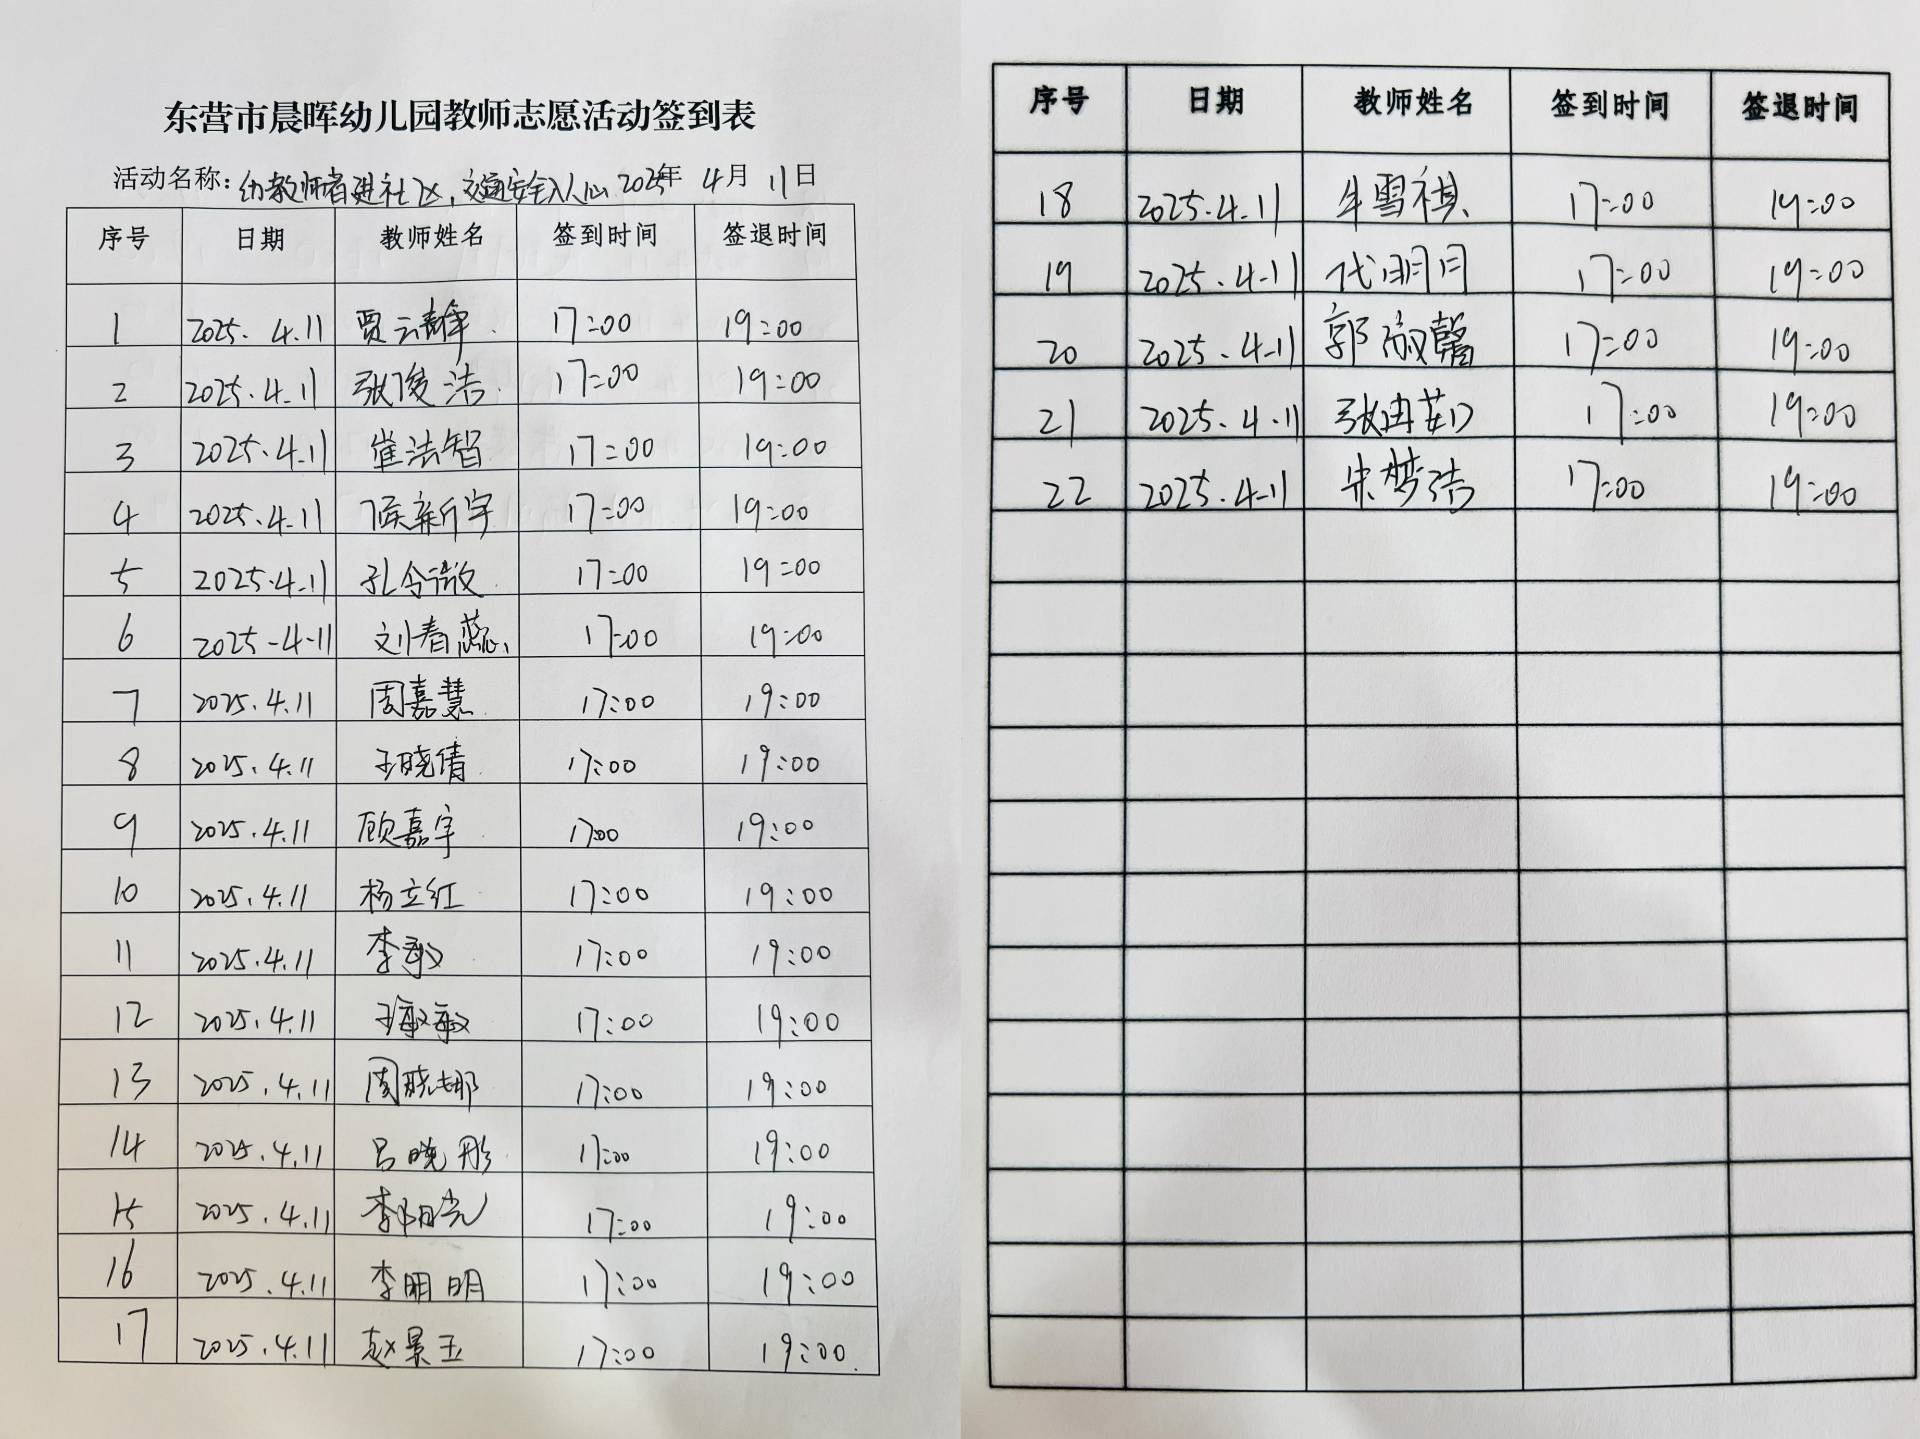 东营市晨晖幼儿园教师志愿活动签到表
活动名称：幼教师者进社区，交通安全入人心 2025年 4月 11日
序号 日期 教师姓名 签到时间 签退时间
1 2025.4.11 贾云静 17:00 19:00
2 2025.4.11 张俊洁 17:00 19:00
3 2025.4.11 崔法智 17:00 19:00
4 2025.4.11 侯新宇 17:00 19:00
5 2025.4.11 孔令微 17:00 19:00
6 2025-4-11 刘春蕊 17:00 19:00
7 2025.4.11 周嘉慧 17:00 19:00
8 2025.4.11 王晓倩 17:00 19:00
9 2025.4.11 顾嘉宇 17:00 19:00
10 2025.4.11 杨立红 17:00 19:00
11 2025.4.11 李敏 17:00 19:00
12 2025.4.11 王敏敏 17:00 19:00
13 2025.4.11 周晓娜 17:00 19:00
14 2025.4.11 吕晓彤 17:00 19:00
15 2025.4.11 李阳光 17:00 19:00
16 2025.4.11 李明明 17:00 19:00
17 2025.4.11 赵景玉 17:00 19:00
序号 日期 教师姓名 签到时间 签退时间
18 2025.4.11 牛雪祺 17:00 19:00
19 2025.4.11 代明月 17:00 19:00
20 2025.4.11 郭淑馨 17:00 19:00
21 2025.4.11 张冉茹 17:00 19:00
22 2025.4.11 宋梦洁 17:00 19:00